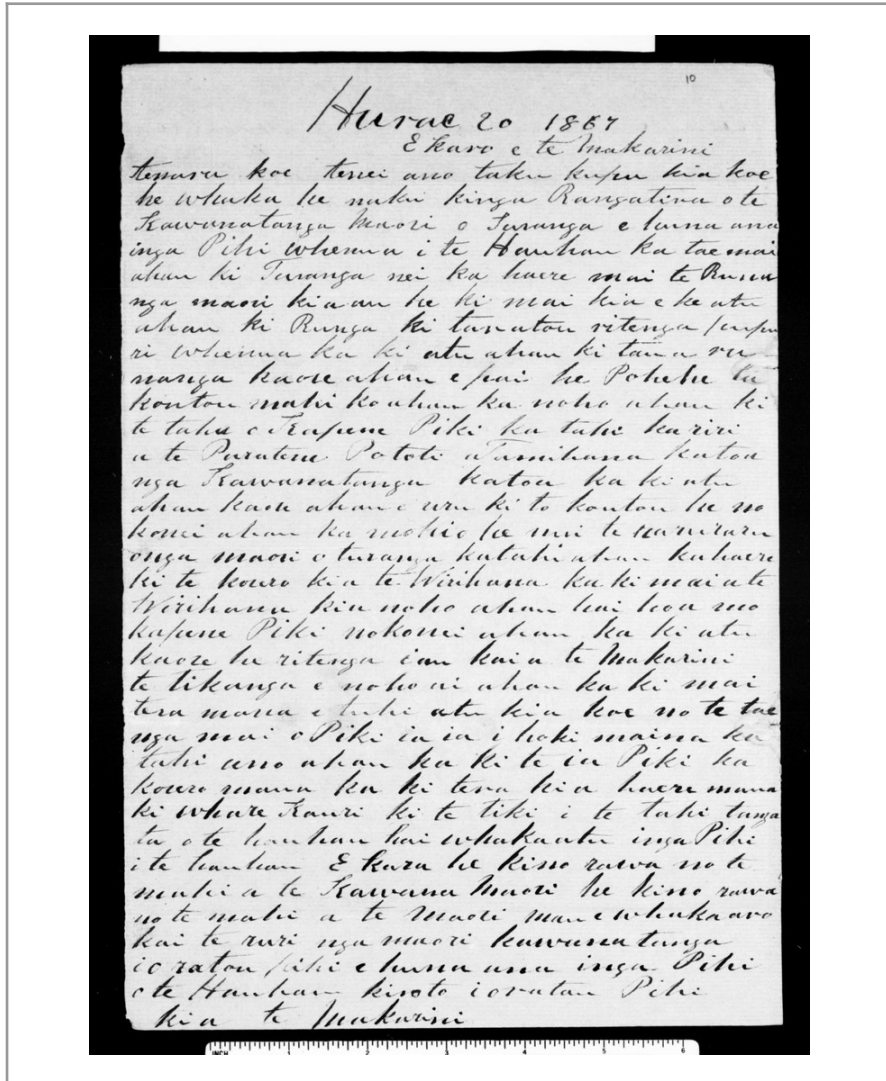 10
Hurae 20 1867
E karo e te Makarini
tenara koe tenei ano taku kupu kia koe
he whaka he naku kinga Rangatira o te
Kawanatanga Maori o Turanga e huna ana
inga Pihi whenua i te Hauhau ka tae mai
ahau ki Turanga nei ka haere mai te Runa
nga maori kia au he ki mai kia eke atu
ahau ki Runga ki tanatou ritenga pupu
ri whenua ka ki atu ahau ki taua ru
nanga kaore ahau e pai he Pohehe ta
koutou mahi ko ahau ka noho ahau ki
te taha o Kapene Piki ka tahi ka riri
a te Paratene Pototi a Tamihana katoa
nga Kawanatanga katoa ka ki atu
ahau kaore ahau e uru ki to koutou he no
konei ahau ka mohio he nui te raruraru
onga maori o turanga katahi ahau ka haere
ki te kouro kia te Wirihana ka ki mai a te
Wirihana kia noho ahau hai hoa mo
kapene Piki nokonei ahau ka ki atu
kaore he ritenga i au kai a te Makarini
te tikanga e noho ai ahau ka ki mai
tera mana e tuhi atu kia koe no te tae
nga mai o Piki ia ia i hoki maina ka
tahi ano ahau ka ki te ia Piki ka
kouro mana ka ki tera kia haere mana
ki whare Kauri ki te tiki i te tahi tanga
ta o te hauhau hai whakaatu inga Pihi
i te hauhau E kara he kino rawa no te
mahi a te Kawana Maori he kino rawa
no te mahi a te Maori mau e whakaaro
kai te ruri nga maori kawanatanga
i o ratou pihi e huna ana inga Pihi
o te Hauhau kiroto i oratau Pihi
kia te Makarini
INCH 1 2 3 4 5 6